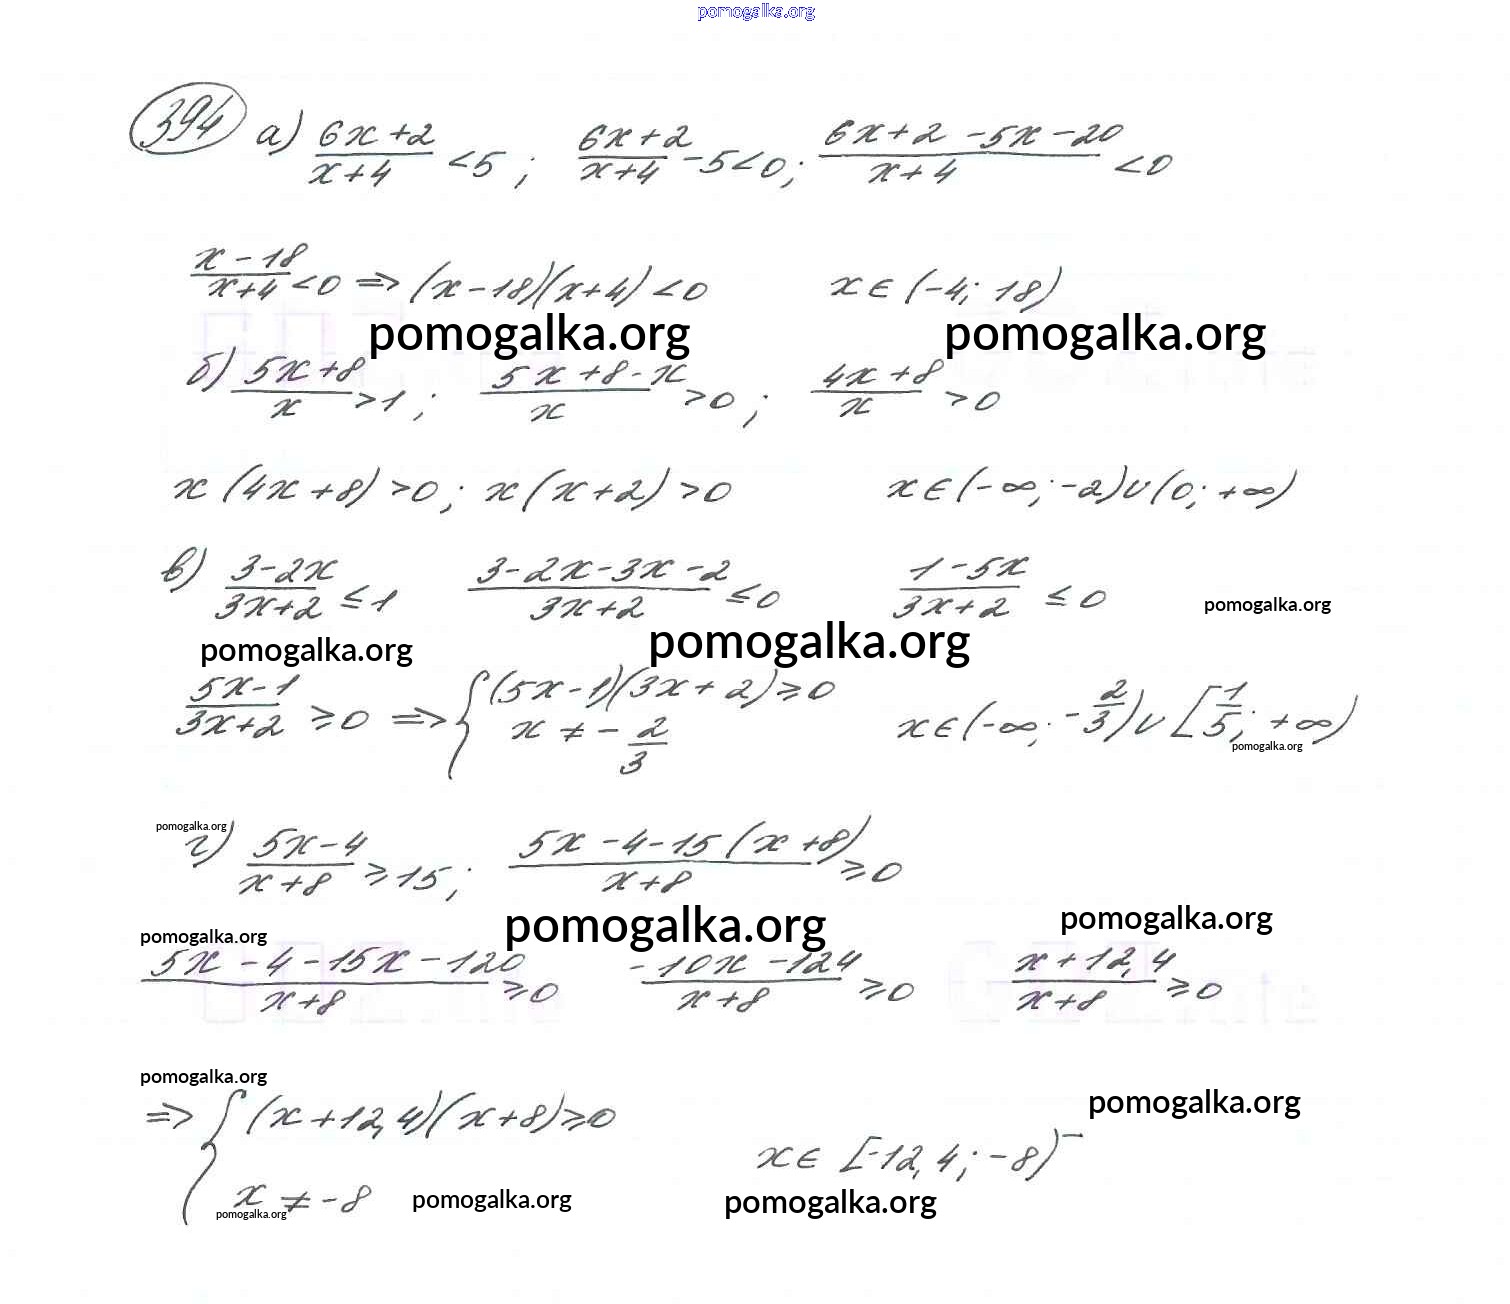 pomogalka.org
394 а) (6x+2)/(x+4) <5 ; (6x+2)/(x+4) -5<0; (6x+2 -5x-20)/(x+4) <0
(x-18)/(x+4) <0 => (x-18)(x+4) <0 x∈(-4; 18)
pomogalka.org pomogalka.org
б) (5x+8)/x >1 ; (5x+8-x)/x >0 ; (4x+8)/x >0
x(4x+8) >0 ; x(x+2) >0 x∈(-∞; -2)∪(0; +∞)
в) (3-2x)/(3x+2) ≤1 (3-2x-3x-2)/(3x+2) ≤0 (1-5x)/(3x+2) ≤0
pomogalka.org
pomogalka.org pomogalka.org
(5x-1)/(3x+2) ≥0 => { (5x-1)(3x+2) ≥0 x∈(-∞; -2/3)∪[1/5; +∞)
x ≠ -2/3
pomogalka.org
pomogalka.org
г) (5x-4)/(x+8) ≥15; (5x-4-15(x+8))/(x+8) ≥0
pomogalka.org pomogalka.org pomogalka.org
(5x-4-15x-120)/(x+8) ≥0 (-10x-124)/(x+8) ≥0 (x+12,4)/(x+8) ≥0
pomogalka.org
=> { (x+12,4)(x+8) ≥0
pomogalka.org
x∈ [-12,4; -8)
x ≠ -8 pomogalka.org pomogalka.org
pomogalka.org